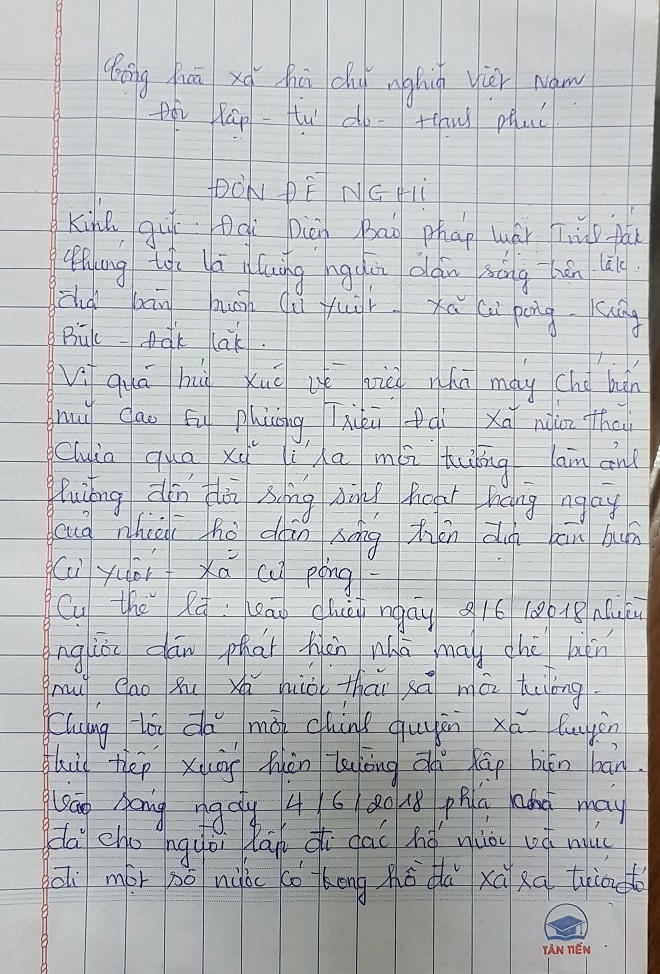 Cộng hoà xã hội chủ nghĩa Việt Nam
Độc lập - tự do - Hạnh phúc.
ĐƠN ĐỀ NGHỊ
Kính gửi: Đại Diện Báo pháp luật Tỉnh Đắk
lắk.
Chúng tôi là những người dân sống trên
địa bàn buôn Cư yuôt - xã Cư pơng - Krông
Búk - Đắk lắk.
Vì quá bức xúc về việc nhà máy chế biến
mủ cao su phương Triệu Đại xã nước thải
Chưa qua xử lí ra môi trường làm ảnh
hưởng đến đời sống sinh hoạt hàng ngày
của nhiều hộ dân sống trên địa bàn buôn
Cư yuôt - xã cư pơng -
Cụ thể là: vào chiều ngày 2/6/2018 nhiều
người dân phát hiện nhà máy chế biến
mủ cao su xã nước thải ra môi trường -
Chúng tôi đã mời chính quyền xã - huyện
trực tiếp xuống hiện trường đã lập biên bản.
Vào sáng ngày 4/6/2018 phía nhà máy
đã cho người lấp đi các hố nước và múc
đi một số nước có trong hồ đã xã ra trước đó
TÂN TIẾN